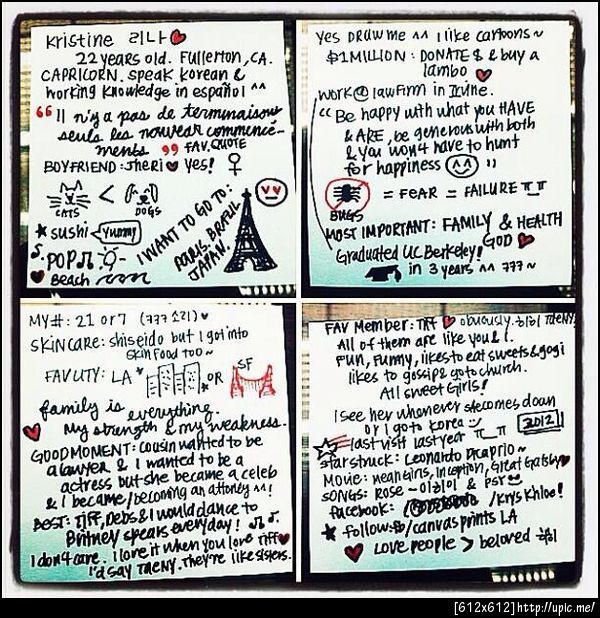 Kristine 리나
22 years old. Fullerton, CA.
CAPRICORN. speak Korean &
working knowledge in español ^^
"Il n'ya pas de terminaisons
seuls les nouveaux commence-
ments" FAV. QUOTE
BOYFRIEND: Jheri yes! ♀
CATS < DOGS
* sushi yummy
POP
Beach
I WANT TO GO TO:
PARIS, BRAZIL
JAPAN.
yes DRAW me ^^ I like cartoons ~
$1 MILLION: DONATE $ & buy a
lambo
work @ lawfirm in Irvine.
"Be happy with what you HAVE
& ARE, be generous with both
& you won't have to hunt
for happiness"
BUGS = FEAR = FAILURE ㅠ_ㅠ
MOST IMPORTANT: FAMILY & HEALTH
GOD
Graduated UC Berkeley!
in 3 years ^^ 777 ~
MY#: 21 or 7 (777 소리)
SKINCARE: shiseido but I got into
skin food too ~
FAV CITY: LA OR SF
family is everything.
My strength & my weakness.
GOOD MOMENT: cousin wanted to be
a lawyer & I wanted to be a
actress but she became a celeb
& I became/becoming an attorney ^^!
BEST: Tiff, Debs & I would dance to
Britney Spears everyday!
I don't care. I love it when you love tiff
I'd say TaeNy. They're like sisters.
FAV Member: Tiff obviously.
All of them are like you & I.
FUN, Funny, likes to eat sweets & gogi
likes to gossip & go to church.
All sweet Girls!
I see her whenever she comes down
or I go to Korea
last visit last year ㅠ_ㅠ 2012!
starstruck: Leonardo Dicaprio ~
Movie: mean girls, Inception, Great Gatsby
SONGS: Rose - 이하이 & PSY
facebook: /KrysKhloe!
* follow: /canvasprints LA
Love people > beloved
[612x612] http://upic.me/